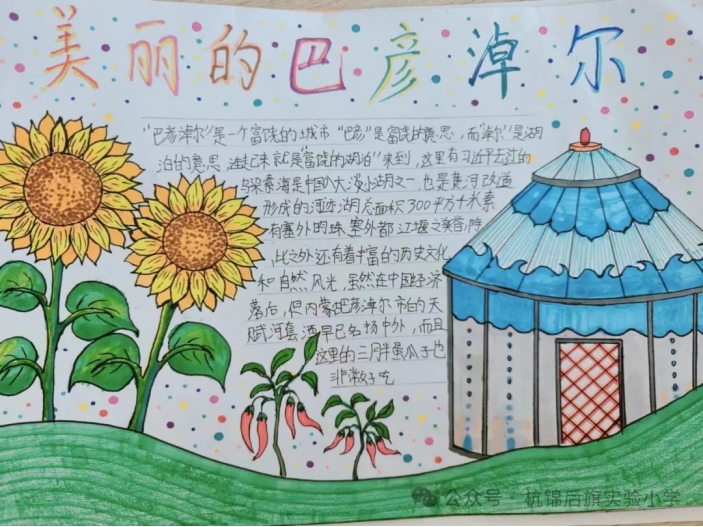 美丽的巴彦淖尔
"巴彦淖尔"是一个富饶的城市 "巴彦"是富饶的意思,而"淖尔"是湖
泊的意思 连起来就是"富饶的湖泊"来到,这里有习近平去过的
乌梁素海是中国八大淡水湖之一,也是黄河改道
形成的河迹湖总面积300平方千米素
有塞外明珠 塞外都江堰之美誉,除
此之外还有着丰富的历史文化
和自然风光,虽然在中国经济
落后,但内蒙古巴彦淖尔市的天
赋河套酒早已名扬中外,而且
这里的三胖蛋瓜子也
非常好吃
公众号·杭锦后旗实验小学